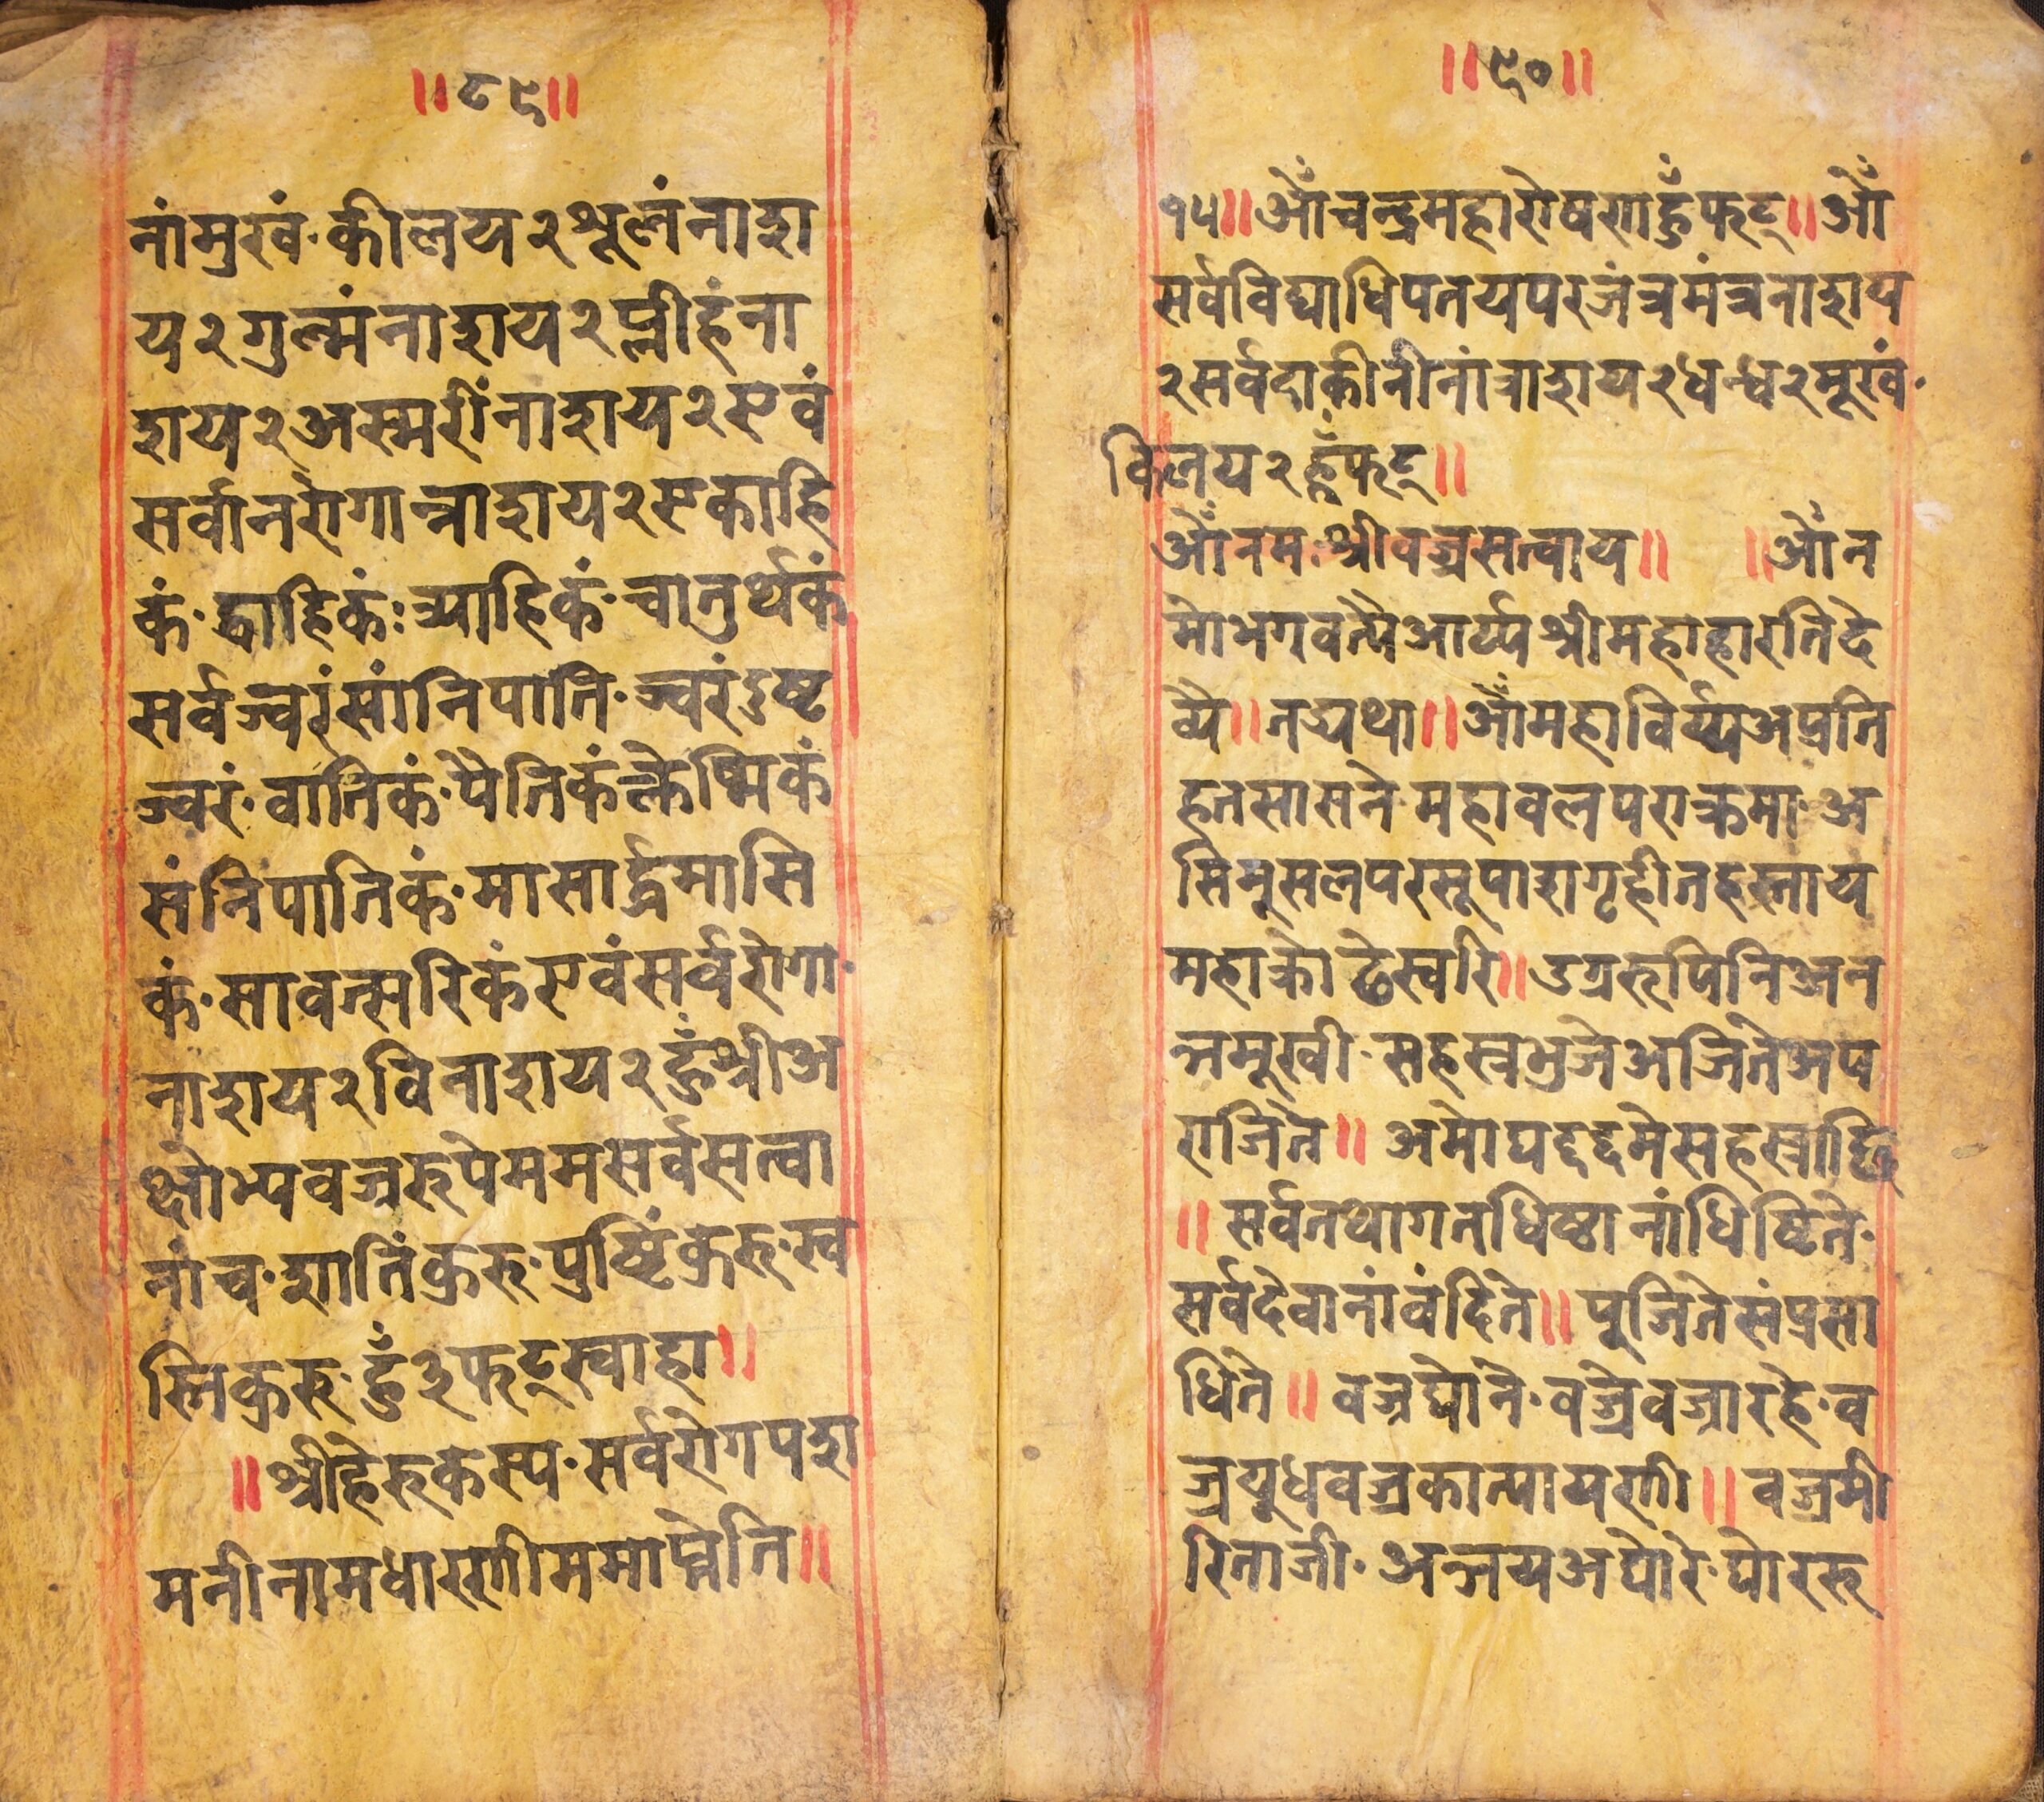 ॥८९॥
नांमुखं·कीलय२श्रूलंनाशा
य२गुल्मंनाशय२प्लीहंना
शय२अस्मरींनाशय२एवं
सर्वानरोगान्नाशय२एकाहि
कं·द्वाहिकंःत्र्याहिकं·चातुर्थकं
सर्वज्वरंसांनिपाति·ज्वरंदुष्ट
ज्वरं·वातिकं·पैतिकंश्लेष्मिकं
संनिपातिकं·मासार्द्धमासि
कं·सावत्सरिकंएवंसर्वरोगा·
नाशय२विनाशय२हुँश्रीअ
क्षोभ्यवज्ररुपेममसर्वसत्वा
नांच·शातिंक्रुरु·प्रष्टिंक्रुरु·स्व
स्तिक्रुरु·हुँ३फट्स्वाहा॥
॥श्रीहेरुकस्य·सर्वरोगपशा
मनीनामधारणीममाप्तेति॥
॥९०॥
१५॥ओँचन्द्रमहारोषणहुँफट्॥ओँ
सर्वविद्याधिपतयपरजंत्रमंत्रनाशय
२सर्वदाकीनीनांत्राशय२धन्ध२मूखं·
किलय२हुँफट्॥
ओँनम·श्रीवज्रसत्वाय॥ ॥ओँन
मोभगवत्यैआर्य्यश्रीमहाहारतिदे
व्यै॥तद्यथा॥ओँमहाविर्य्यअप्रति
हतसासने·महावलपराक्रमा·अ
सिमूसलपरसूपाशगृहीतहस्ताय
महाक्रोद्धेस्वरि॥उग्ररूपिनिअन
न्तमूखी·सहस्त्रभुजेअजितेअप
राजिते॥अमोघ
॥सर्वतथागतधिष्ठानांधिष्टिते·
सर्वदेवानांवंदिते॥पुजितेसंप्रसा
धिते॥वज्रघोने·वज्रेवज्रारहे·व
ज्रयुधवज्रकात्यायणी॥वज्रमी
रिताजी·अन्जयअघोरे·घोररू